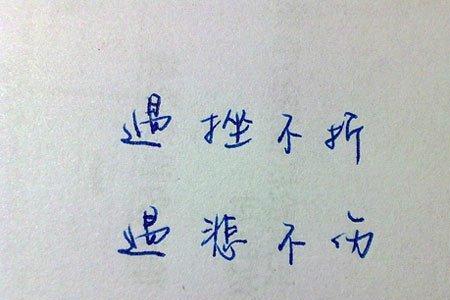 遇挫不折
遇悲不伤